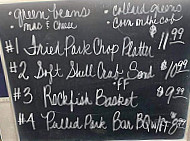 • green beans • collard greens
• mac & cheese • corn on the cob
#1 Fried Pork Chop Platter 11.99
#2 Soft Shell Crab Sand $10.99
w/ FF
#3 Rockfish Basket $9.99
#4 Pulled Pork Bar BQ w/FF 8.99